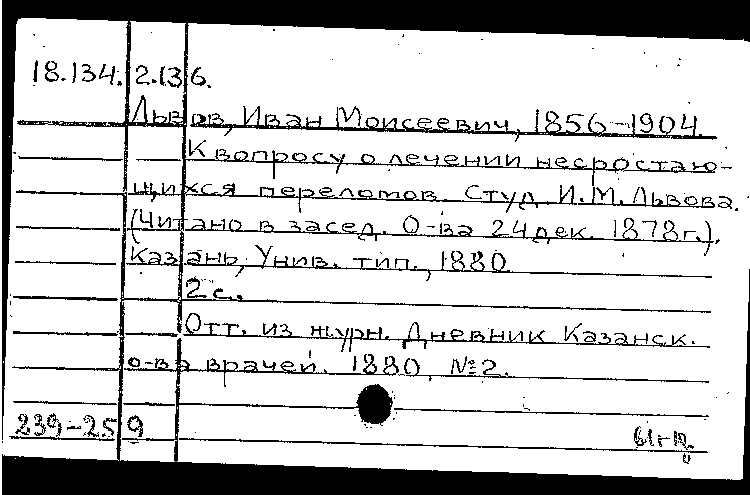 18.134.2.136.
Львов, Иван Моисеевич, 1856-1904.
К вопросу о лечении несростаю-
щихся переломов. Студ. И.М.Львова.
(Читано в засед. О-ва 24 дек. 1878г.).
Казань, Унив. тип., 1880
2 с.
Отт. из журн. Дневник Казанск.
о-ва врачей. 1880, №2.
239-259